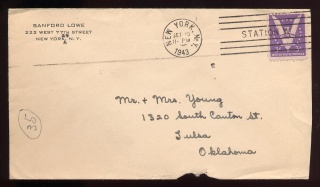 SANFORD LOWE
233 WEST 77TH STREET
NEW YORK, N.Y.
NEW YORK, N.Y.
1943
STATION
Mr. + Mrs. Young
1320 South Canton St.
Tulsa
Oklahoma
35